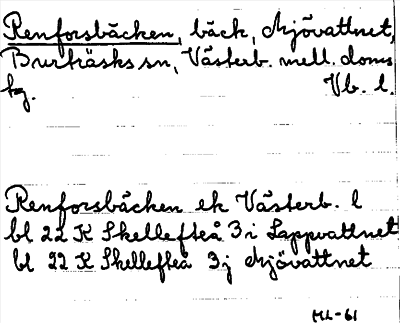 Renforsbäcken, bäck, Mjövattnet,
Burträsks sn, Västerb. mell. doms
kg. Vb. l.
Renforsbäcken ek Västerb. l
bl 22 K Skellefteå 3 i Lappvattnet
bl 22 K Skellefteå 3 j Mjövattnet
ML-61